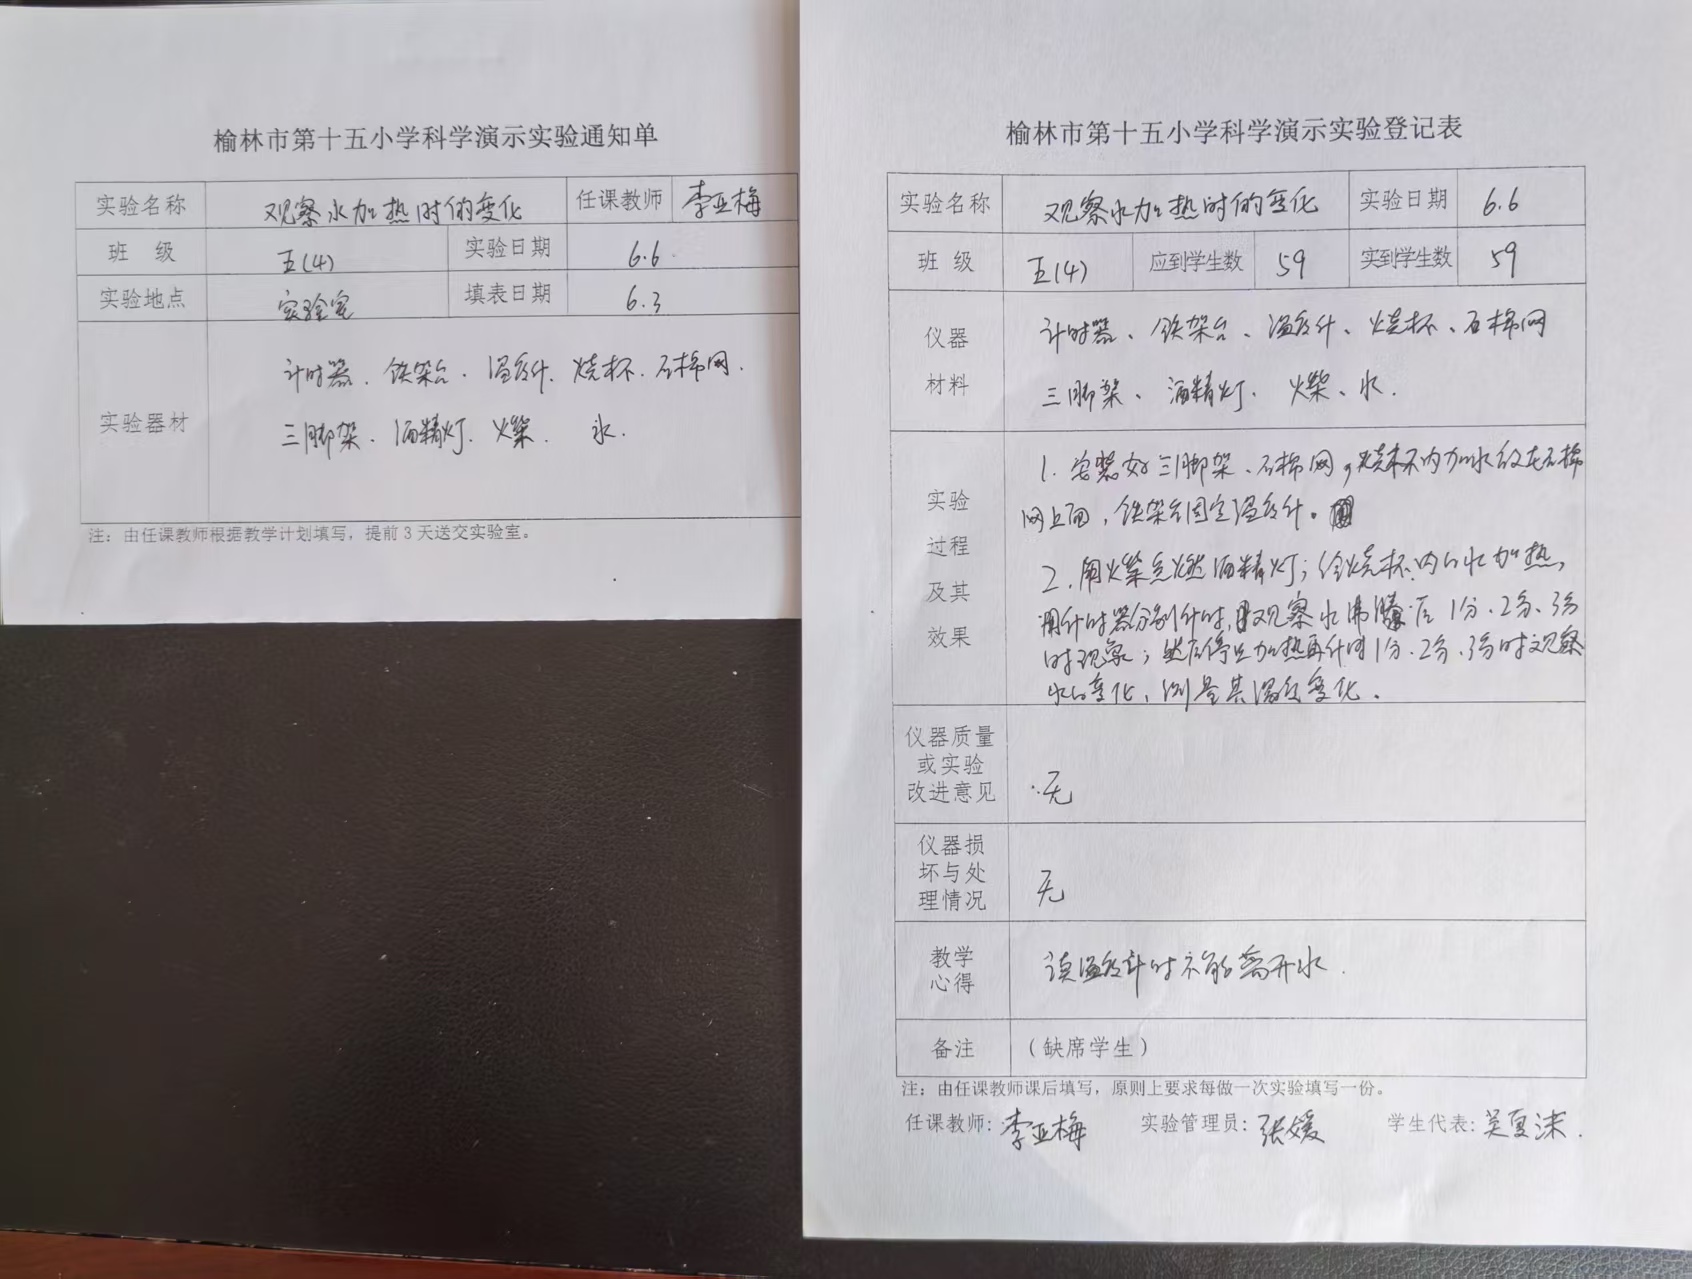 榆林市第十五小学科学演示实验通知单
实验名称 观察水加热时的变化 任课教师 李亚梅
班 级 五(4) 实验日期 6.6
实验地点 实验室 填表日期 6.3
实验器材
计时器、铁架台、温度计、烧杯、石棉网、
三脚架、酒精灯、火柴、水.
注：由任课教师根据教学计划填写，提前3天送交实验室。
榆林市第十五小学科学演示实验登记表
实验名称 观察水加热时的变化 实验日期 6.6
班 级 五(4) 应到学生数 59 实到学生数 59
仪器
材料
计时器、铁架台、温度计、烧杯、石棉网
三脚架、酒精灯、火柴、水.
实验
过程
及其
效果
1. 安装好三脚架、石棉网，烧杯内加水放在石棉
网上面，铁架台固定温度计。
2. 用火柴点燃酒精灯；给烧杯内的水加热，
用计时器分别计时，观察水沸腾后1分、2分、3分
时现象；然后停止加热再计时1分、2分、3分时观察
水的变化，测量其温度变化.
仪器质量
或实验
改进意见
无
仪器损
坏与处
理情况
无
教学
心得
读温度计时不能离开水.
备注 （缺席学生）
注：由任课教师课后填写，原则上要求每做一次实验填写一份。
任课教师：李亚梅 实验管理员：张媛 学生代表：吴夏沫.